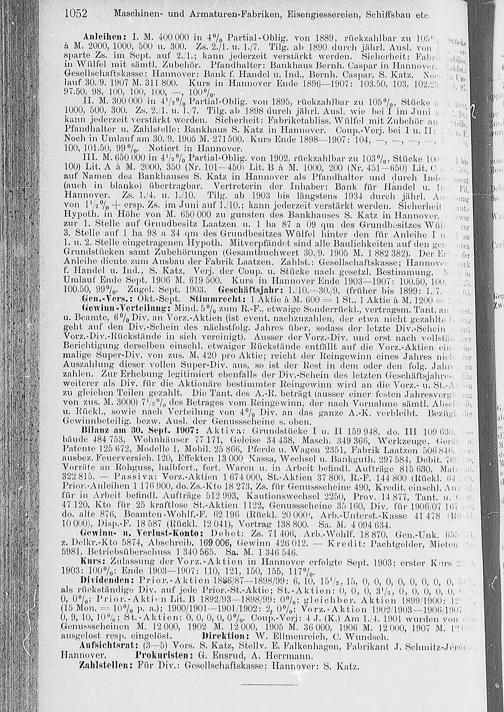 1052 Maschinen- und Armaturen-Fabriken, Eisengiessereien, Schiffsbau etc.
Anleihen: I. M. 400 000 in 4% Partial-Oblig. von 1889, rückzahlbar zu 105%
à M. 2000, 1000, 500 u. 300. Zs. 2./1. u. 1./7. Tilg. ab 1890 durch jährl. Ausl. von
sparte Zs. im Sept. auf 2./1.; kann jederzeit verstärkt werden. Sicherheit: Fabrik
in Wülfel mit sämtl. Zubehör. Pfandhalter: Bankhaus Bernh. Caspar in Hannover.
Gesellschaftskasse; Hannover: Bank f. Handel u. Ind., Bernh. Caspar, S. Katz. Noch
lauf 30./9. 1907 M. 311 800. Kurs in Hannover Ende 1896—1907: 103.50, 103, 102.25
97.50, 98, 100, 100, 100, —, 100%.
II. M. 300 000 in 4½% Partial-Oblig. von 1895, rückzahlbar zu 105%, Stücke à
1000, 500, 300. Zs. 2./1. u. 1./7. Tilg. ab 1898 durch jährl. Ausl. wie bei I im Juni
kann jederzeit verstärkt werden. Sicherheit: Fabriketabliss. Wülfel mit Zubehör an
Pfandhalter u. Zahlstelle: Bankhaus S. Katz in Hannover. Coup.-Verj. bei I u. II:
Noch in Umlauf am 30./9. 1905 M. 271 500. Kurs Ende 1898—1907: 104, —, —, —,
100, 101.50, 99%. Notiert in Hannover.
III. M. 650 000 in 4½% Partial-Oblig. von 1902, rückzahlbar zu 103%, Stücke
100) Lit. A à M. 2000, 350 (Nr. 101—450) Lit. B à M. 1000, 200 (Nr. 451—650) Lit. C
auf Namen des Bankhauses S. Katz in Hannover als Pfandhalter und durch Indo
(auch in blanko) übertragbar. Vertreterin der Inhaber: Bank für Handel u. In
Hannover. Zs. 1./4. u. 1./10. Tilg. ab 1903 bis längstens 1934 durch jährl. Au
von 1½% + ersp. Zs. im Juni auf 1./10.; kann jederzeit verstärkt werden. Sicherheit
Hypoth. in Höhe von M. 650 000 zu gunsten des Bankhauses S. Katz in Hannover,
zur 1. Stelle auf Grundbesitz Laatzen u. 1 ha 87 a 09 qm des Grundbesitzes Wül
3. Stelle auf 1 ha 98 a 34 qm des Grundbesitzes Wülfel hinter den für Anleihe I u.
1. u. 2. Stelle eingetragenen Hypoth. Mitverpfändet sind alle Baulichkeiten auf den ge
Grundstücken samt Zubehörungen (Gesamtbuchwert 30./9. 1905 M. 1 882 382). Der Er
Anleihe diente zum Ausbau der Fabrik Laatzen. Zahlst.: Gesellschaftskasse; Hannov
f. Handel u. Ind., S. Katz. Verj. der Coup. u. Stücke nach gesetzl. Bestimmung.
Umlauf Ende Sept. 1906 M. 619 500. Kurs in Hannover Ende 1903—1907: 100.50, 100
100.50, 99%. Zugel. Sept. 1903. Geschäftsjahr: 1./10.—30./9. (früher bis 1899: 1./7.
Gen.-Vers.: Okt.-Sept. Stimmrecht: 1 Aktie à M. 600 = 1 St., 1 Aktie à M. 1200 =
Gewinn-Verteilung: Mind. 5% zum R.-F., etwaige Sonderrückl., vertragsm. Tant. an
u. Beamte, 6% Div. an Vorz.-Aktien (ist event. nachzuzahlen, der etwa nicht gezahlte
geht auf den Div.-Schein des nächstfolg. Jahres über, sodass der letzte Div.-Schein
Vorz.-Div.-Rückstände in sich vereinigt). Ausser der Vorz.-Div. und erst nach vollständ
Berichtigung derselben einschl. etwaiger Rückstände entfällt auf die Vorz.-Aktien ein
malige Super-Div. von zus. M. 420 pro Aktie; reicht der Reingewinn eines Jahres nich
Auszahlung dieser vollen Super-Div. aus, so ist der Rest in dem oder den folg. Jahr
zahlen. Zur Erhebung legitimiert ebenfalls der Div.-Schein des letzten Geschäftsjahres
weiterer als Div. für die Aktionäre bestimmter Reingewinn wird an die Vorz.- u. St.-A
zu gleichen Teilen gezahlt. Die Tant. des A.-R. beträgt (ausser einer festen Jahresverg
von zus. M. 3000) 7½% des Betrages vom Reingewinn, der nach Vornahme sämtl. Absch
u. Rückl., sowie nach Verteilung von 4% Div. an das ganze A.-K. verbleibt. Bezügl. der
Gewinnbeteilig. bezw. Ausl. der Genussscheine s. oben.
Bilanz am 30. Sept. 1907: Aktiva: Grundstücke I u. II 159 948, do. III 109 630,
bäude 484 753, Wohnhäuser 77 171, Geleise 34 438, Masch. 349 366, Werkzeuge, Gerät
Patente 125 672, Modelle 1, Mobil. 25 866, Pferde u. Wagen 2351, Fabrik Laatzen 506 846,
ausbez. Feuerversich. 120, Effekten 13 000, Kassa, Wechsel u. Bankguth. 297 584, Debit.
Vorräte an Rohguss, halbfert., fert. Waren u. in Arbeit befindl. Aufträge 815 630, Mat
322 815. — Passiva: Vorz.-Aktien 1 674 000, St.-Aktien 37 800, R.-F. 144 800 (Rückl.
Prior.-Anleihen 1 176 900, do. Zs.-Kto 18 273, Zs. für Genussscheine 490, Kredit. einschl. An
für in Arbeit befindl. Aufträge 512 993, Kautionswechsel 2250, Prov. 14 877, Tant. u.
47 120, Kto für 25 kraftlose St.-Aktien 1122, Genussscheine 35 160, Div. für 1906/07
do. alte 876, Beamten-Wohlf.-F. 92 196 (Rückl. 20 000), Arb.-Unterst.-Kasse 41 478
10 000), Disp.-F. 18 587 (Rückl. 12 041), Vortrag 138 800. Sa. M. 4 094 634.
Gewinn- u. Verlust-Konto: Debet: Zs. 71 406, Arb.-Wohlf. 18 870, Gen.-Unk.
z. Delkr.-Kto 5874, Abschreib. 169 006, Gewinn 426 012. — Kredit: Pachtgelder, Mieten
5981, Betriebsüberschuss 1 340 565. Sa. M. 1 346 546.
Kurs: Zulassung der Vorz.-Aktien in Hannover erfolgte Sept. 1903; erster Kurs
1903: 100%; Ende 1903—1907: 110, 121, 150, 155, 117%.
Dividenden: Prior.-Aktien 1886/87—1898/99: 6, 10, 15½, 15, 0, 0, 0, 0, 0, 0, 0, 0,
als rückständig Div. auf jede Prior.-St.-Aktie; St.-Aktien: 0, 0, 0, 3½, 0, 0, 0, 0,
0, 0%; Prior.-Aktien Lit. B 1892/93—1898/99: 0%; gleichber. Aktien 1899/1900:
(15 Mon. = 10% p. a.); 1900/1901—1901/1902: 2, 0%; Vorz.-Aktien 1902/1903—1906/1907:
0, 9, 10, 10%; St.-Aktien: 0, 0, 0, 0, 0%. Coup.-Verj.: 4 J. (K.) Am 1./4. 1901 wurden von
Genussscheinen M. 12 000, 1902 M. 12 000, 1905 M. 36 000, 1906 M. 12 000, 1907 M.
ausgelost resp. eingelöst. Direktion: W. Ellmenreich, C. Wundsch.
Aufsichtsrat: (3—5) Vors. S. Katz, Stellv. E. Falkenhagen, Fabrikant J. Schmitz-Jérôm
Hannover. Prokuristen: G. Ensrud, A. Herrmann.
Zahlstellen: Für Div.: Gesellschaftskasse; Hannover: S. Katz.